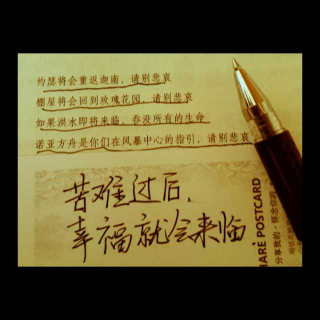 约瑟将会重返迦南，请别悲哀
棚屋将会回到玫瑰花园，请别悲哀
如果洪水即将来临，吞没所有的生命
诺亚方舟是你们在风暴中心的指引，请别悲哀
苦难过后，
幸福就会来临
SHARE POSTCARD
分享我的·怀念你的